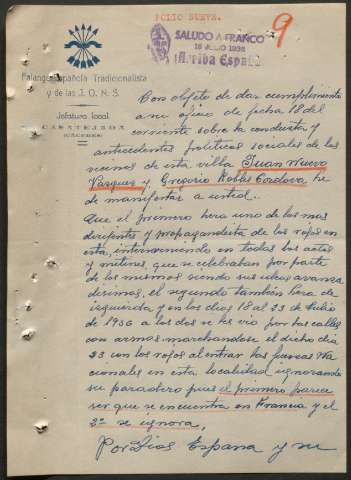 FOLIO NUEVE.
9
SALUDO A FRANCO
18 JULIO 1936
¡Arriba España!
Falange Española Tradicionalista
y de las J. O. N. S.
Jefatura local
CASATEJADA
(CÁCERES)
Con objeto de dar cumplimiento
a su oficio de fecha 18 del
corriente sobre la conducta y
antecedentes politicos sociales de los
vecinos de esta villa Juan Nuevo
Vazquez y Gregorio Robles Cordova he
de manifestar a usted.
Que el primero hera uno de los mas
dirijentes y propagandista de los rojos en
esta, interviniendo en todos los actos
y mitines, que se celebraban por parte
de los mismos siendo sus ideas avanza
disimas, el segundo también hera de
izquierda y en los dias 18 al 23 de Julio
de 1936 a los dos se les vio por las calles
con armas marchandose el dicho dia
23 con los rojos al entrar las fuerzas Na
cionales en esta localidad ignorando
su paradero pues el primero parece
ser que se encuentra en Francia y el
2º se ignora,
Por Dios España y su